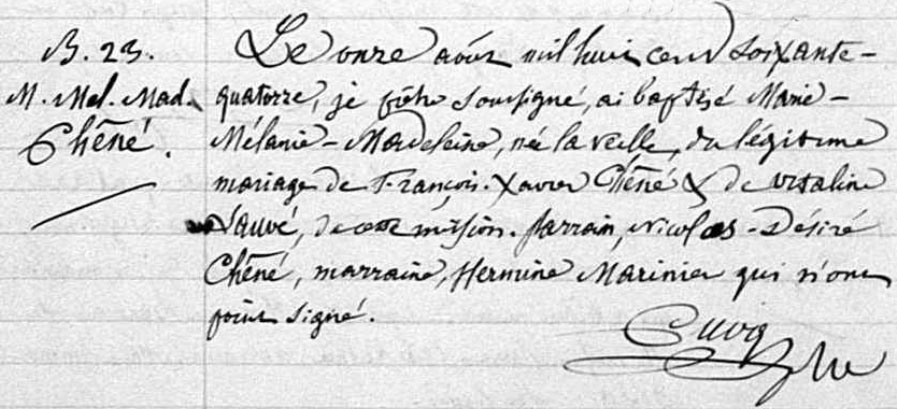 B. 23.
M. Mel. Mad.
Chêné.
Le onze août mil huit cent soixante-
quatorze, je prêtre soussigné, ai baptisé Marie-
Mélanie-Madeleine, née la veille, du légitime
mariage de François-Xavier Chêné & de Vitaline
Sauvé, de cette mission. Parrain, Nicolas-Désiré
Chêné, marraine, Hermine Marinier qui n'ont
point signé.
Ptre